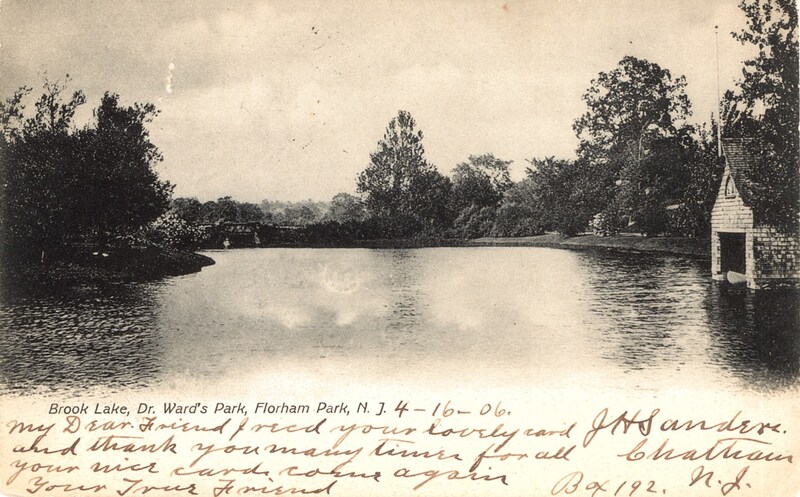 Brook Lake, Dr. Ward's Park, Florham Park, N. J. 4-16-06.
My Dear Friend I recd your lovely card J H Sanders.
and thank you many times for all Chatham
your nice cards come again Box 192. N.J.
Your True Friend